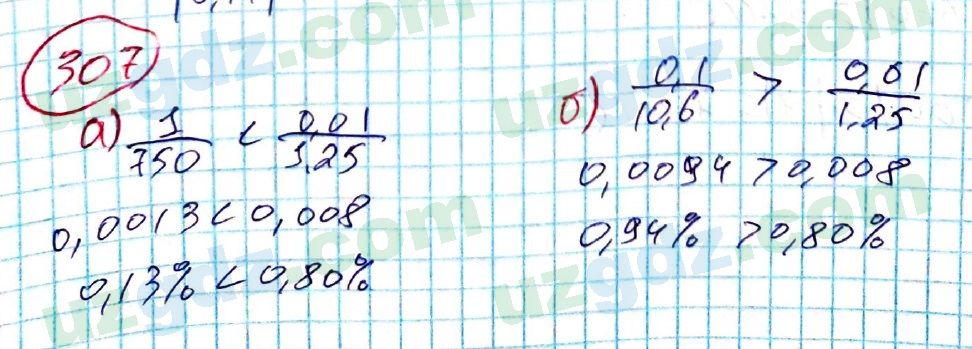 307
а) 1/750 < 0,01/1,25
0,0013 < 0,008
0,13% < 0,80%
б) 0,1/10,6 > 0,01/1,25
0,0094 > 0,008
0,94% > 0,80%
uzgdz.com
uzgdz.com
uzgdz.com
uzgdz.com